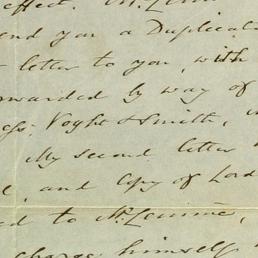 effect.
end you a Duplicate
letter to you, with
orwarded by way of
Voght & Smith,
My second letter
and Copy of Lord
ed to
charge himself